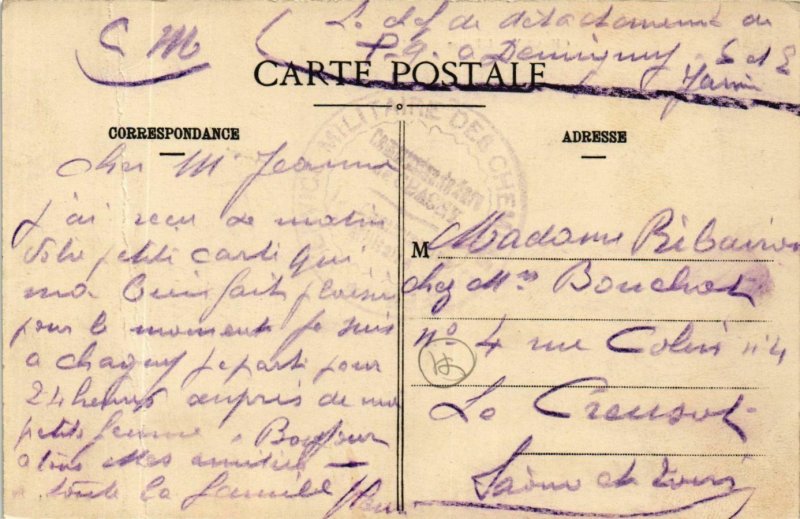 F M
Le chef de détachement de
P-4 a Demigny S et L
CARTE POSTALE
CORRESPONDANCE
ADRESSE
MILITAIRE DES CHEM
Commission de Gare
Cher Mr Jeanne
J'ai reçu ce matin
votre petite carte qui
ma bien fait plaisir
pour le moment je suis
a chagny je parti pour
24 heures aupres de ma
petite femme. Bonjour
a tous mes amitiés
a toute la famille
M Madame Ribairon
chez Mme Bouchot
No 4 rue Colin n 4
Le Creusot
Saône et Loire